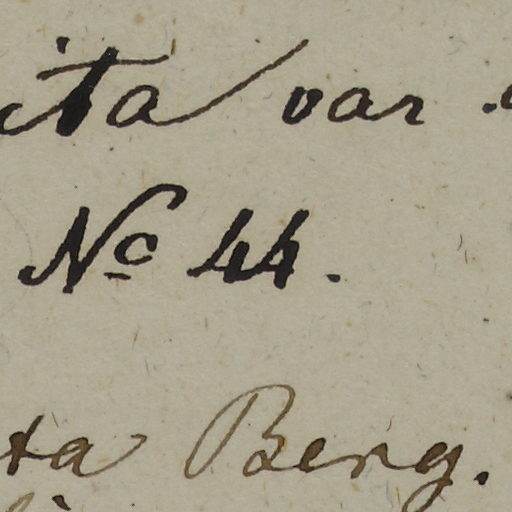 ita var
Nº 44.
ta Berg.